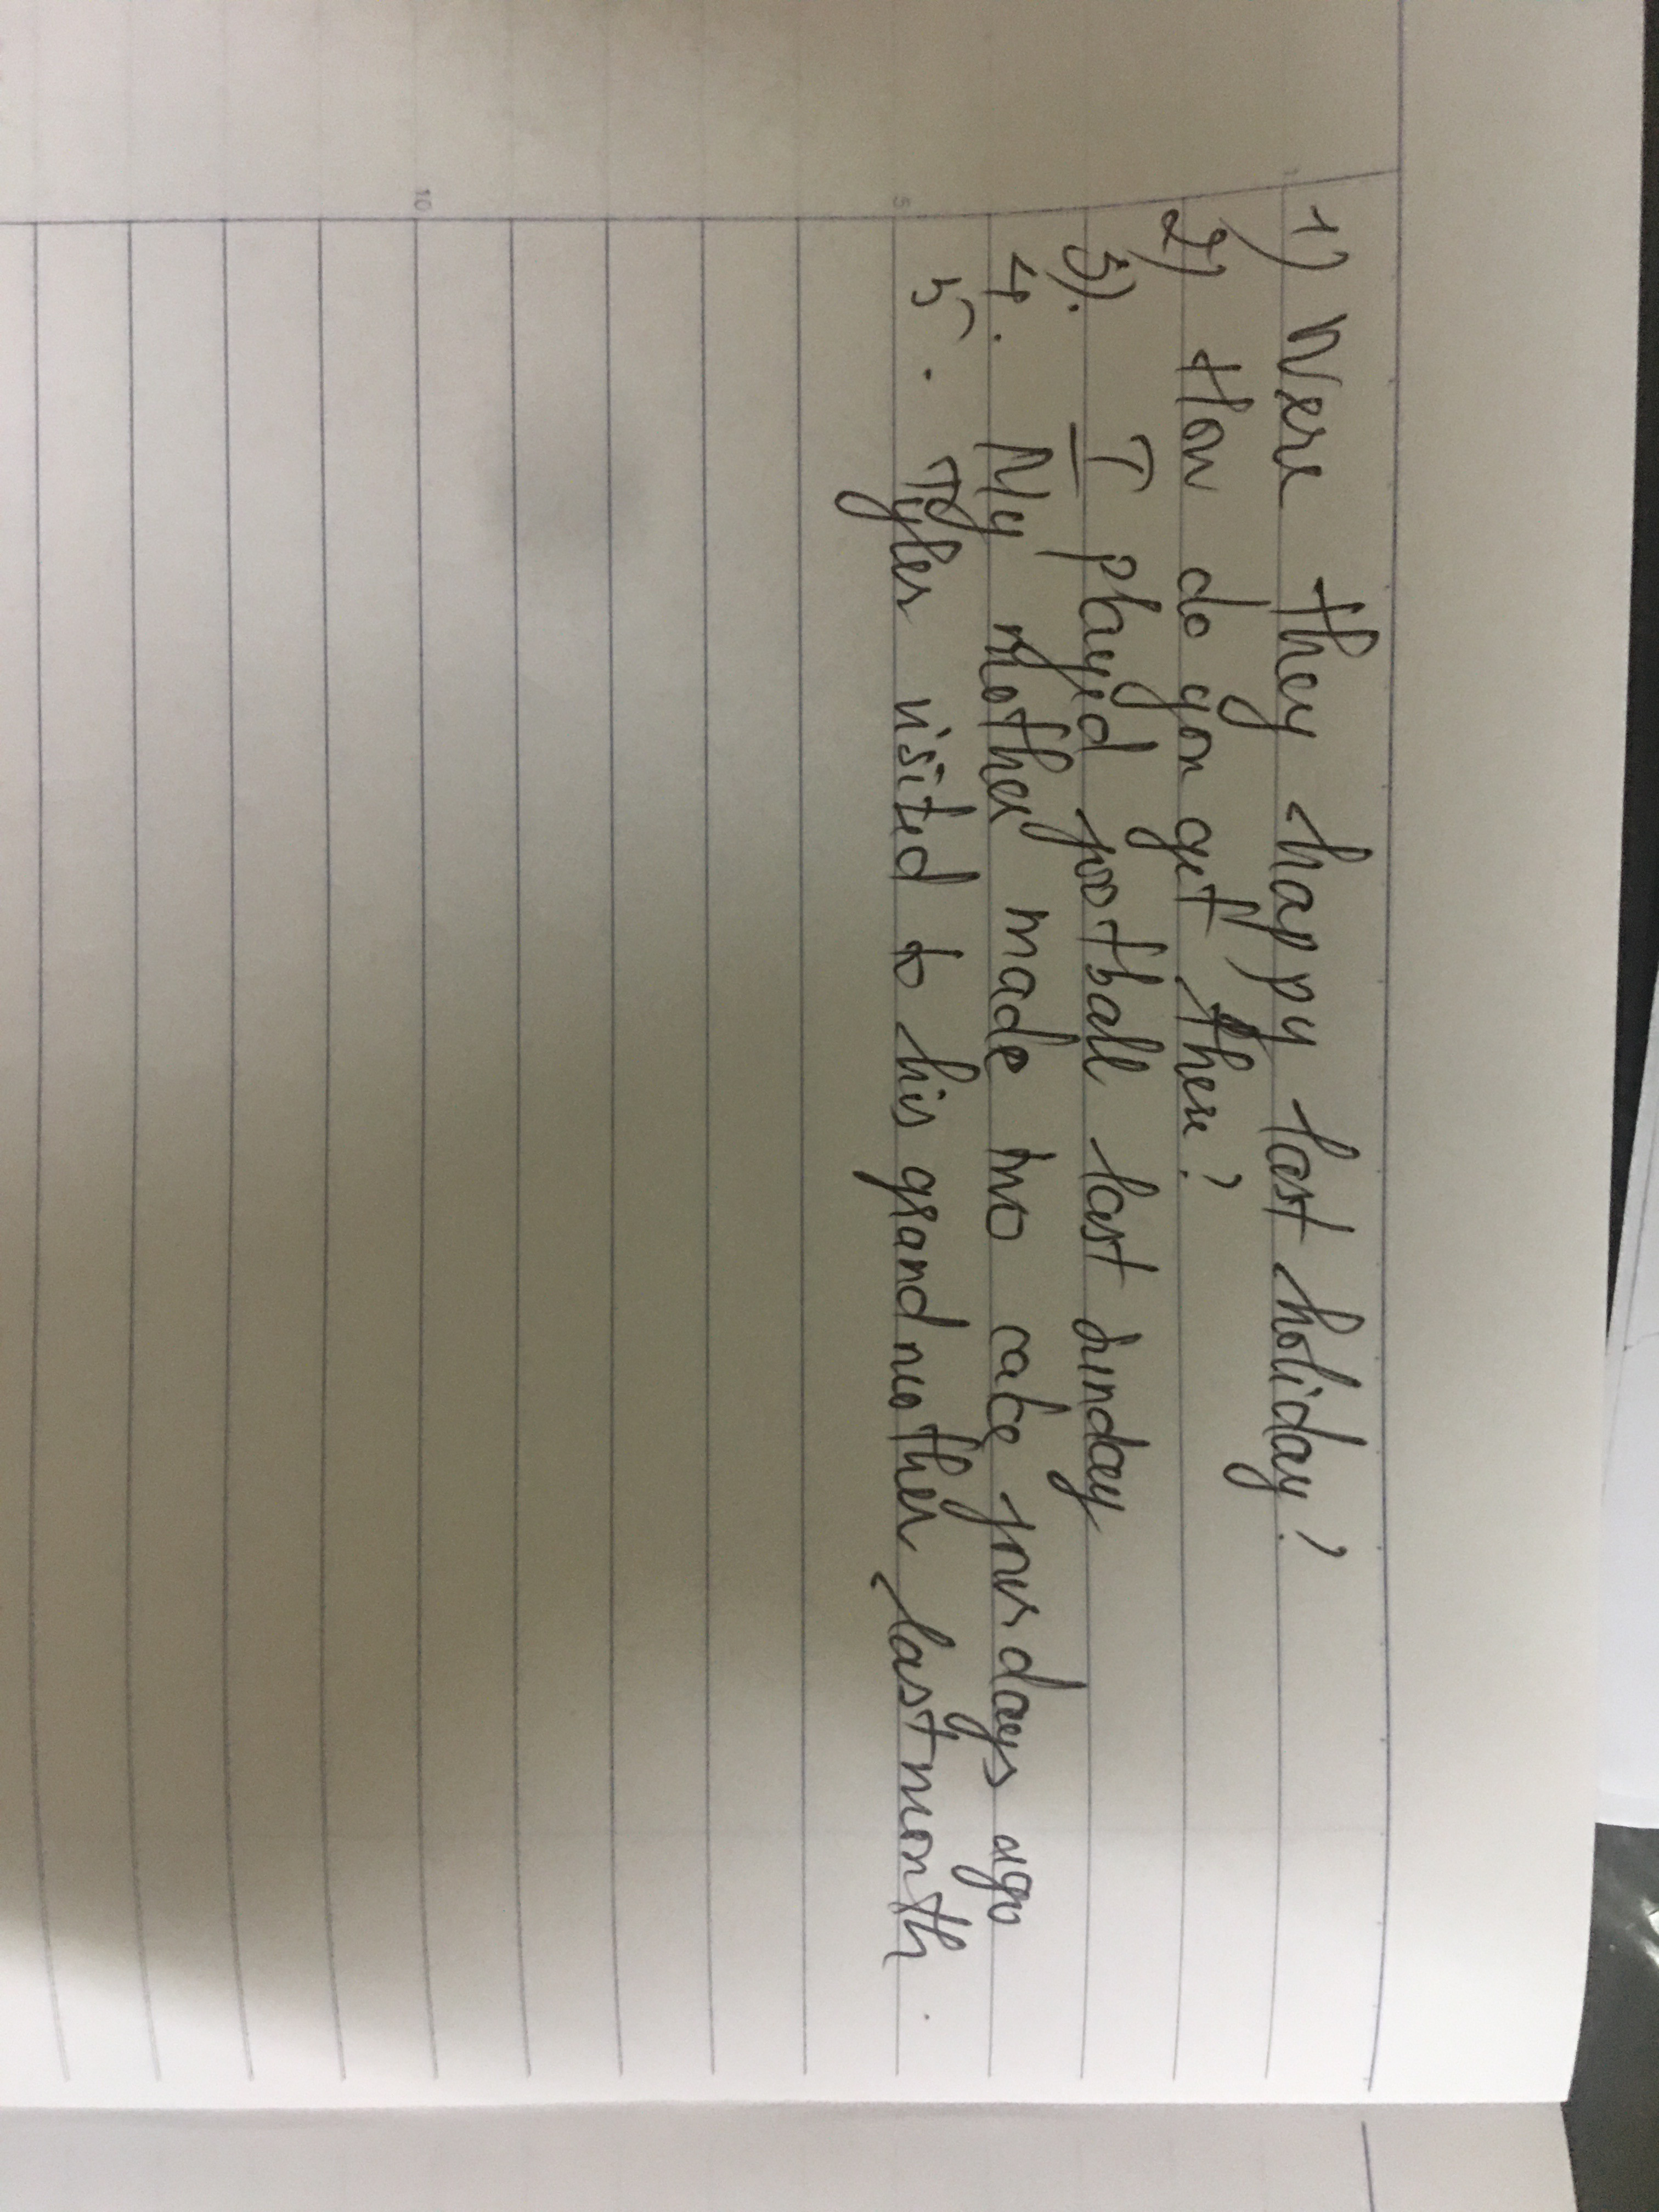 1) Were they happy last holiday?
2) How do you get there?
3). I played football last sunday
4. My mother made two cake four days ago
5. Tyler visited to his grandmother last month.
5
10